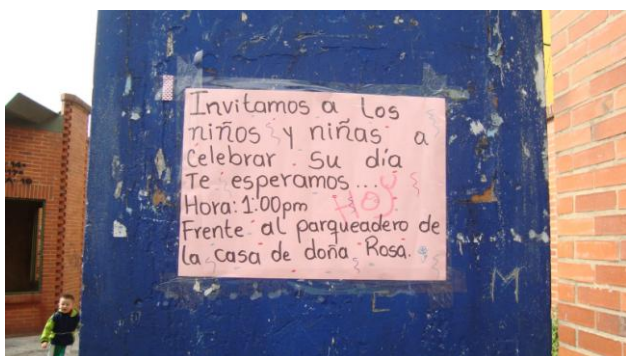 Invitamos a los
niños y niñas a
Celebrar su día
Te esperamos...
HOY
Hora: 1:00pm
Frente al parqueadero de
la casa de doña Rosa.
M